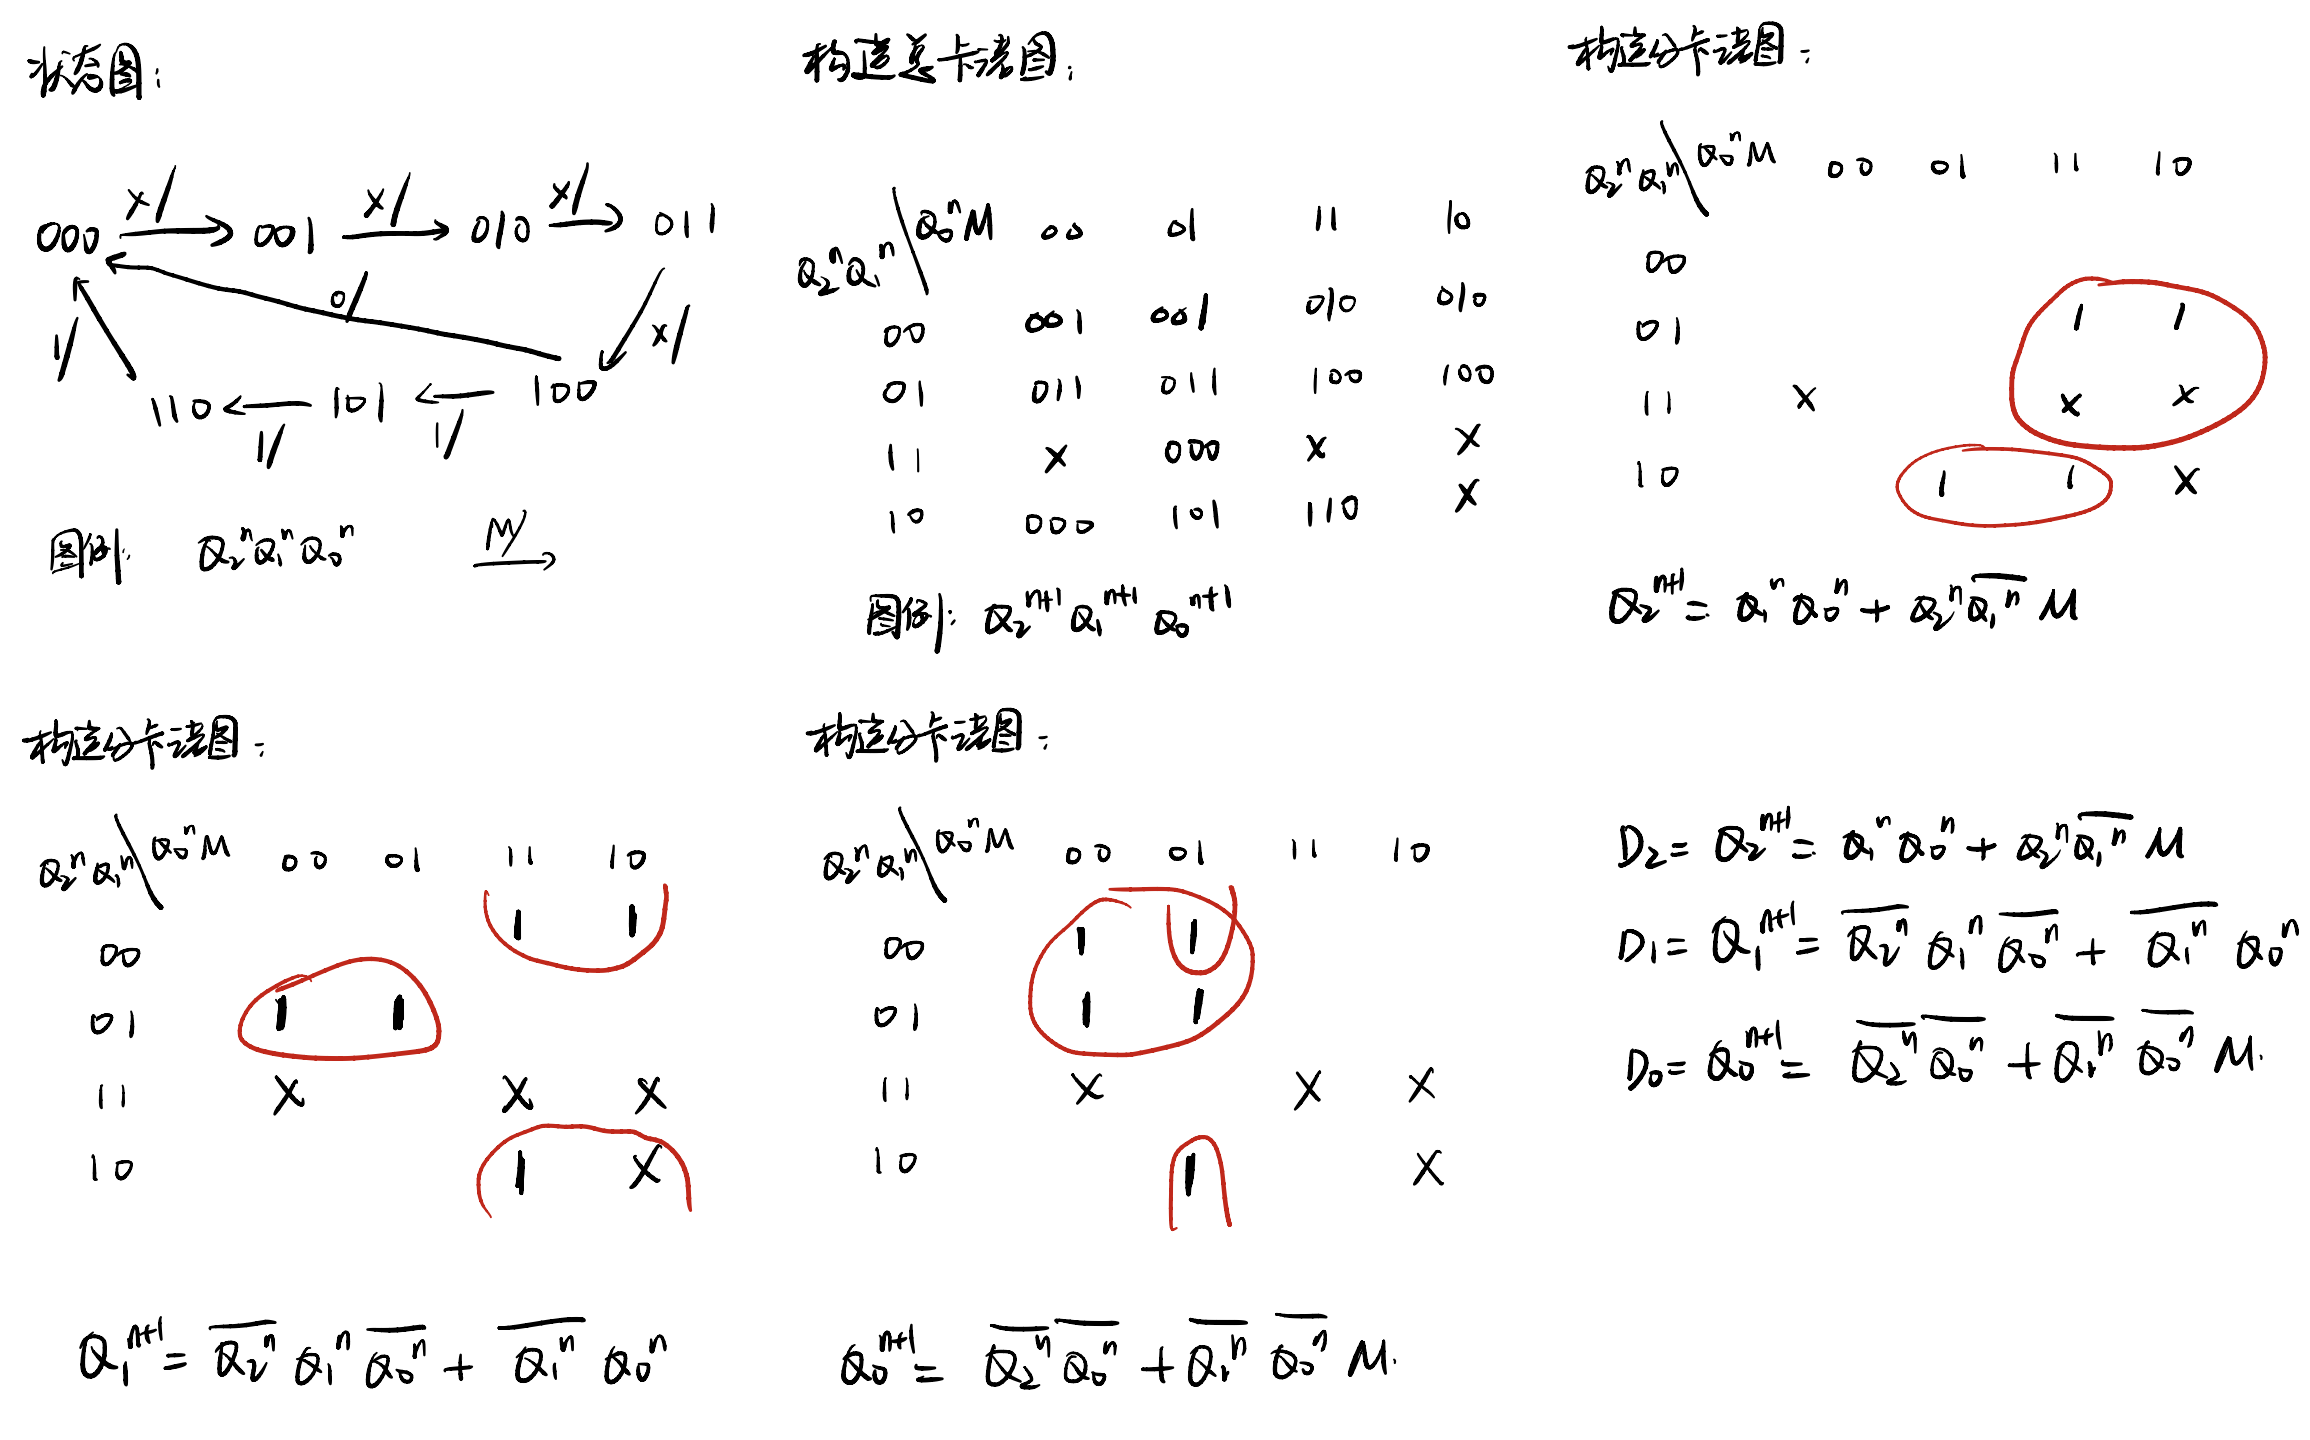 状态图:
000 x/ 001 x/ 010 x/ 011
0/ x/
1/
110 1/ 101 1/ 100
图例: Q₂ⁿQ₁ⁿQ₀ⁿ M/
构造总卡诺图:
Q₂ⁿQ₁ⁿ\Q₀ⁿM 00 01 11 10
00 001 001 010 010
01 011 011 100 100
11 x 000 x x
10 000 101 110 x
图例: Q₂ⁿ⁺¹Q₁ⁿ⁺¹Q₀ⁿ⁺¹
构造分卡诺图:
Q₂ⁿQ₁ⁿ\Q₀ⁿM 00 01 11 10
00
01 1 1
11 x x x
10 1 1 x
Q₂ⁿ⁺¹ = Q₁ⁿQ₀ⁿ + Q₂ⁿ\overline{Q₁ⁿ}M
构造分卡诺图:
Q₂ⁿQ₁ⁿ\Q₀ⁿM 00 01 11 10
00 1 1
01 1 1
11 x x x
10 1 x
Q₁ⁿ⁺¹ = \overline{Q₂ⁿ}Q₁ⁿ\overline{Q₀ⁿ} + \overline{Q₁ⁿ}Q₀ⁿ
构造分卡诺图:
Q₂ⁿQ₁ⁿ\Q₀ⁿM 00 01 11 10
00 1 1
01 1 1
11 x x x
10 1 x
Q₀ⁿ⁺¹ = \overline{Q₂ⁿ}\overline{Q₀ⁿ} + \overline{Q₁ⁿ}\overline{Q₀ⁿ}M.
D₂ = Q₂ⁿ⁺¹ = Q₁ⁿQ₀ⁿ + Q₂ⁿ\overline{Q₁ⁿ}M
D₁ = Q₁ⁿ⁺¹ = \overline{Q₂ⁿ}Q₁ⁿ\overline{Q₀ⁿ} + \overline{Q₁ⁿ}Q₀ⁿ
D₀ = Q₀ⁿ⁺¹ = \overline{Q₂ⁿ}\overline{Q₀ⁿ} + \overline{Q₁ⁿ}\overline{Q₀ⁿ}M.